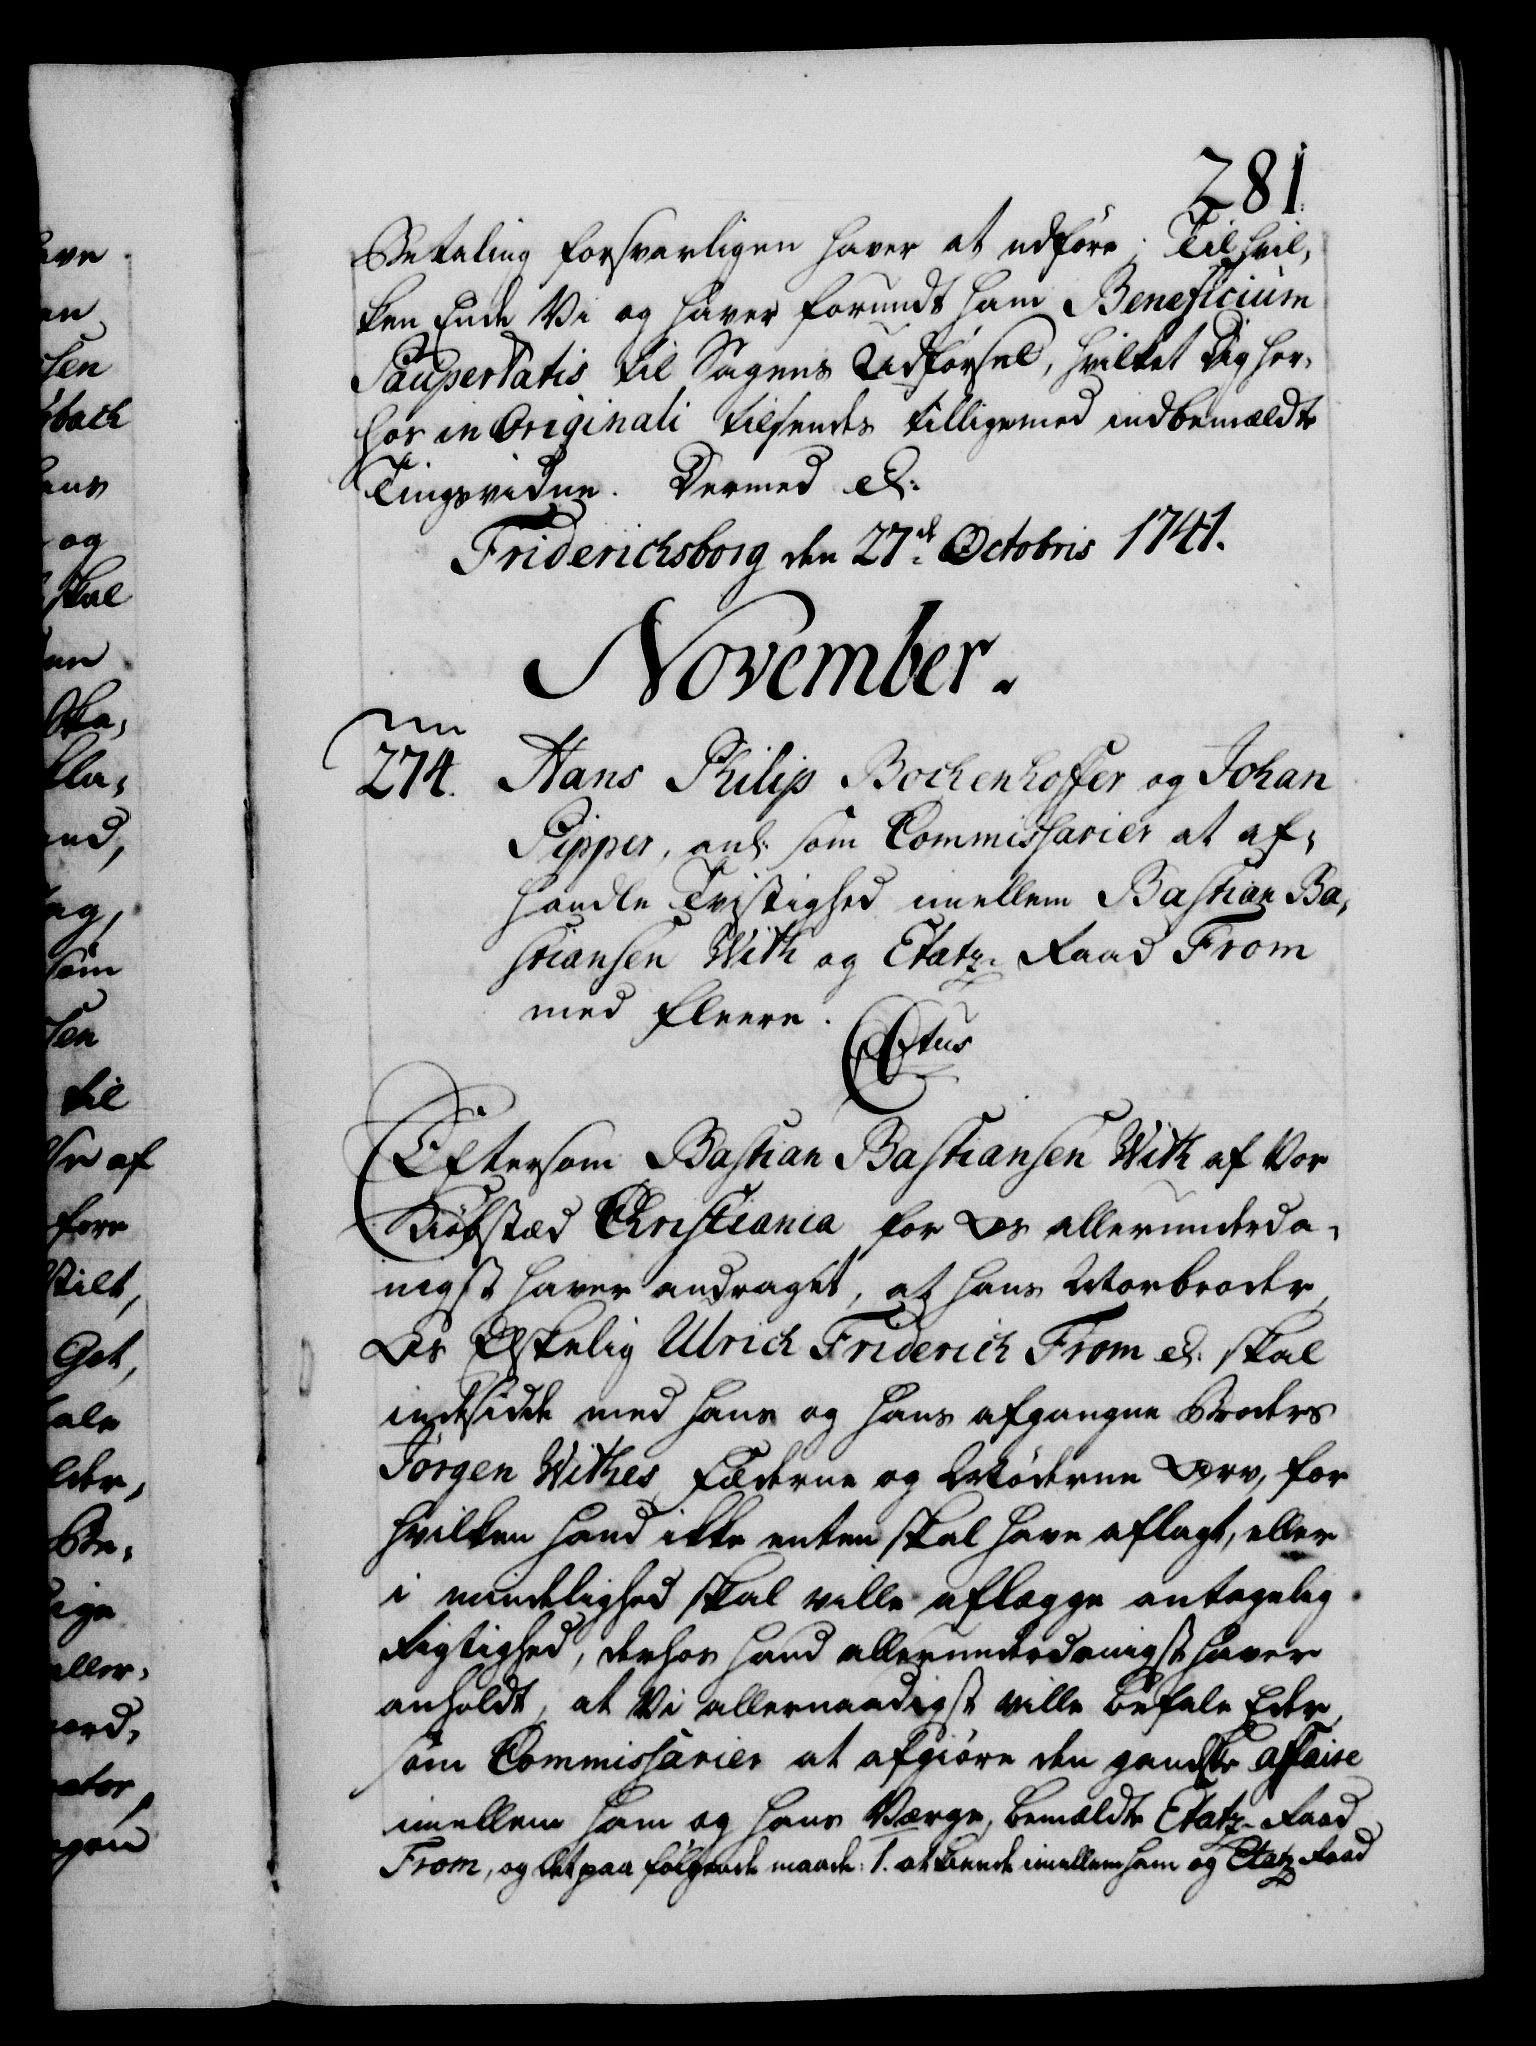 281.
Betaling forsvarligen haver at udføre; Til hvil,
ken Ende Vi og haver forundt ham Beneficium
Paupertatis til Sagens Udførsel, hvilket Dig her,
hos in Originali tilsendes tilligemed indbemældte
Tingsvidne. Dermed &:
Friderichsborg den 27de Octobris 1741.
November.
274. Hans Philip Bochenhoffer og Johan
Pipper, anl: som Commissarier at af,
handle Tvistighed imellem Bastian Ba,
stiansen With og Etatz-Raad From
med fleere.
Ctus
Eftersom Bastian Bastiansen With af Vor
Kiøbstæd Christiania for Os allerunderda,
nigst haver andraget, at hans Morbroder,
Os Elskelig Ulrich Friderich From &: skal
indesidde med hans og hans afgangne Broders
Jørgen Withes Fæderne og Møderne Arv, for
hvilken hand ikke enten skal have aflagt, eller
i mindelighed skal ville aflægge antagelig
Rigtighed, derhos hand allerunderdanigst haver
anholdt, at Vi allernaadigst ville befale Eder,
som Commissarier at afgiøre den gandske affaire
imellem ham og hans Værge, bemældte Etatz-Raad
From, og det paa følgende maade: 1. at kiende imellem ham og Etatz Raad
ave
en
sen
bach
hans
og
skal
en
Ska,
kla,
and,
ag,
som
sen
til
af
fore
stilt,
Get,
ale
lder,
Be,
ige
aller,
ord,
ator,
gen